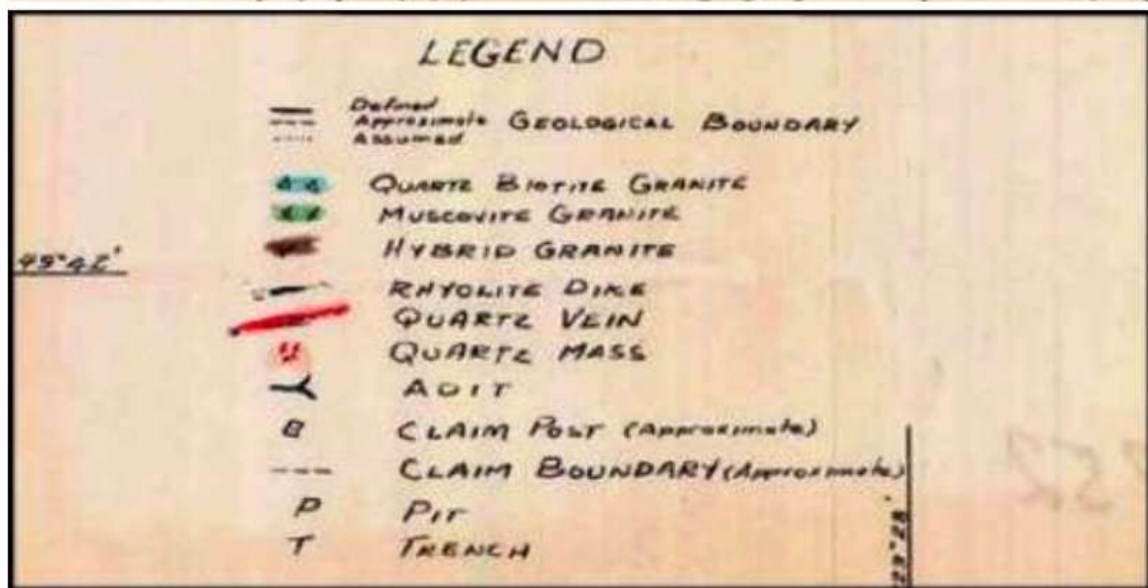 LEGEND
Defined
Approximate GEOLOGICAL BOUNDARY
Assumed
QUARTZ BIOTITE GRANITE
MUSCOVITE GRANITE
HYBRID GRANITE
49°42'
RHYOLITE DIKE
QUARTZ VEIN
QUARTZ MASS
ADIT
CLAIM POST (Approximate)
CLAIM BOUNDARY (Approximate)
P PIT
T TRENCH